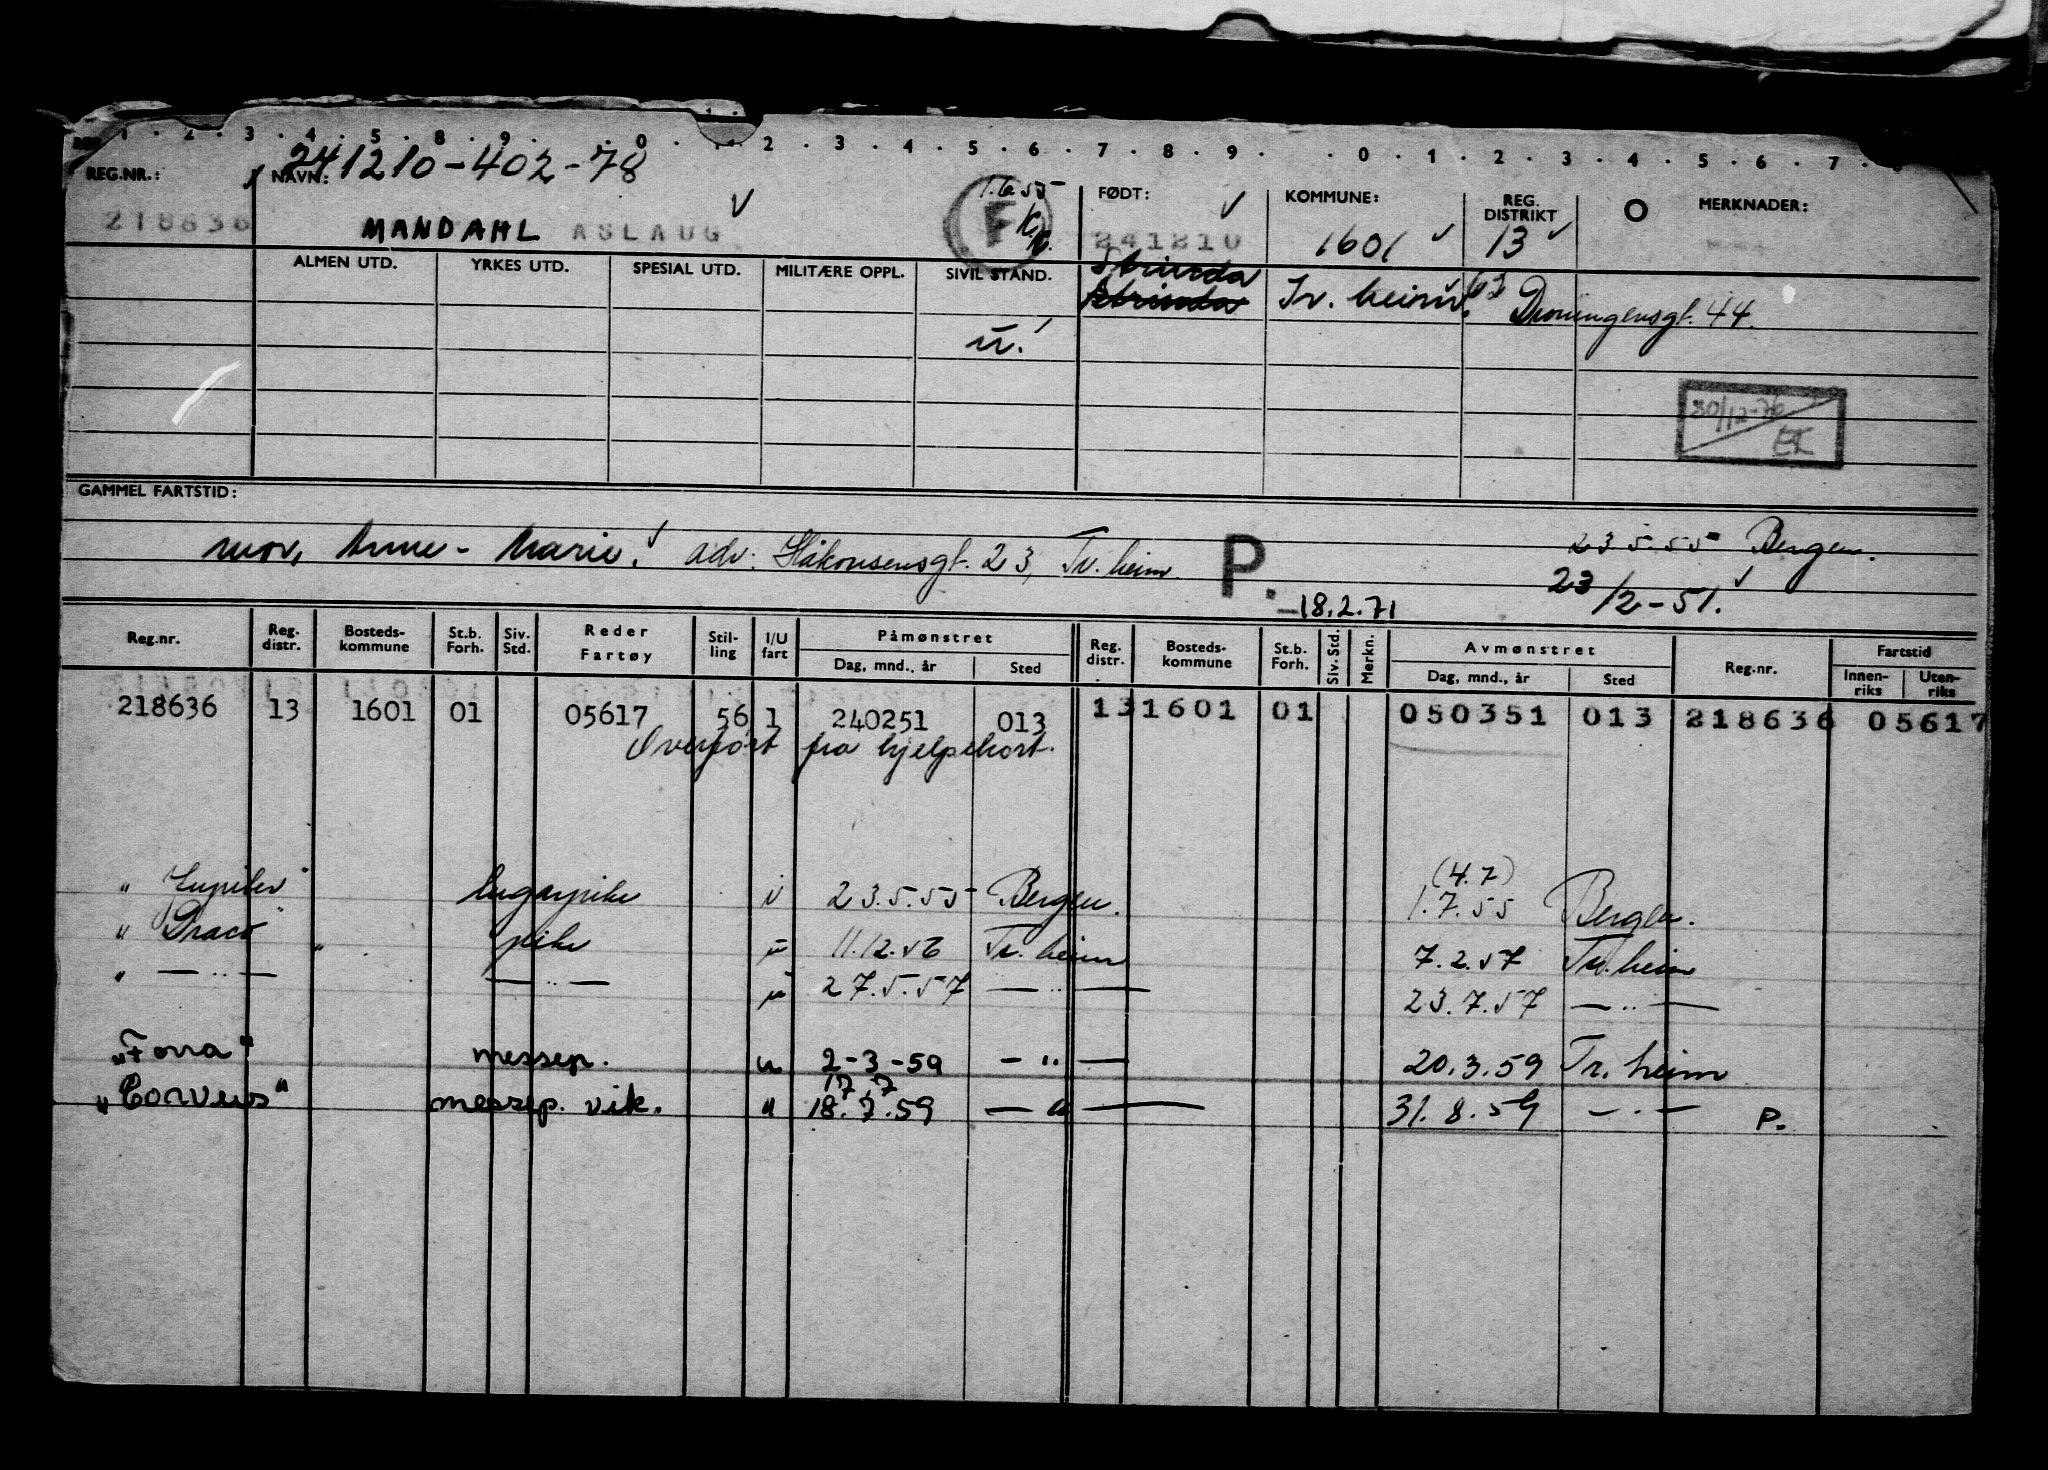 1 . 2 . 3 . 4 . 5 . 8 . 9 . . 0 . 1 . 2 . 3 . 4 . 5 . 6 . 7 . 8 . 9 . . 0 . 1 . 2 . 3 . 4 . 5 . 6 . 7 .
REG.NR.: NAVN: 241210-402-78 1.6.55 FØDT: KOMMUNE: REG. DISTRIKT O MERKNADER:
218636 MANDAHL ASLAUG F 241210 1601 13
ALMEN UTD. YRKES UTD. SPESIAL UTD. MILITÆRE OPPL. SIVIL STAND. Strinda
Strinda Tr. heim. Dronningensgt. 44.
u.
30/12-76
EK
GAMMEL FARTSTID:
mor, Anne-Marie. adr: Håkonsensgt. 23, Tr. heim. P. 23.5.55 Bergen.
18.2.71 23/2-51.
Reg.nr. Reg. distr. Bosteds- kommune St.b. Forh. Siv. Std. Reder Fartøy Stil- ling I/U fart Påmønstret Reg. distr. Bosteds- kommune St.b. Forh. Siv. Std. Merkn. Avmønstret Reg.nr. Fartstid
Dag, mnd., år Sted Dag, mnd., år Sted Innen- riks Uten- riks
218636 13 1601 01 05617 56 1 240251 013 13 1601 01 050351 013 218636 05617
Overført fra hjelpekort.
(4.7)
" Jupiter" lugarpike i 23.5.55 Bergen. 1.7.55 Bergen.
" Draco " pike u 11.12.56 Tr. heim 7.2.57 Tr. heim
" — " — — " — u 27.5.57 — " — 23.7.57 — " —
"Forra" messep. u 2-3-59 — " — 20.3.59 Tr. heim
17 7
"Corvus" messep. vik. " 18.7.59 — " — 31.8.59 — " — P.